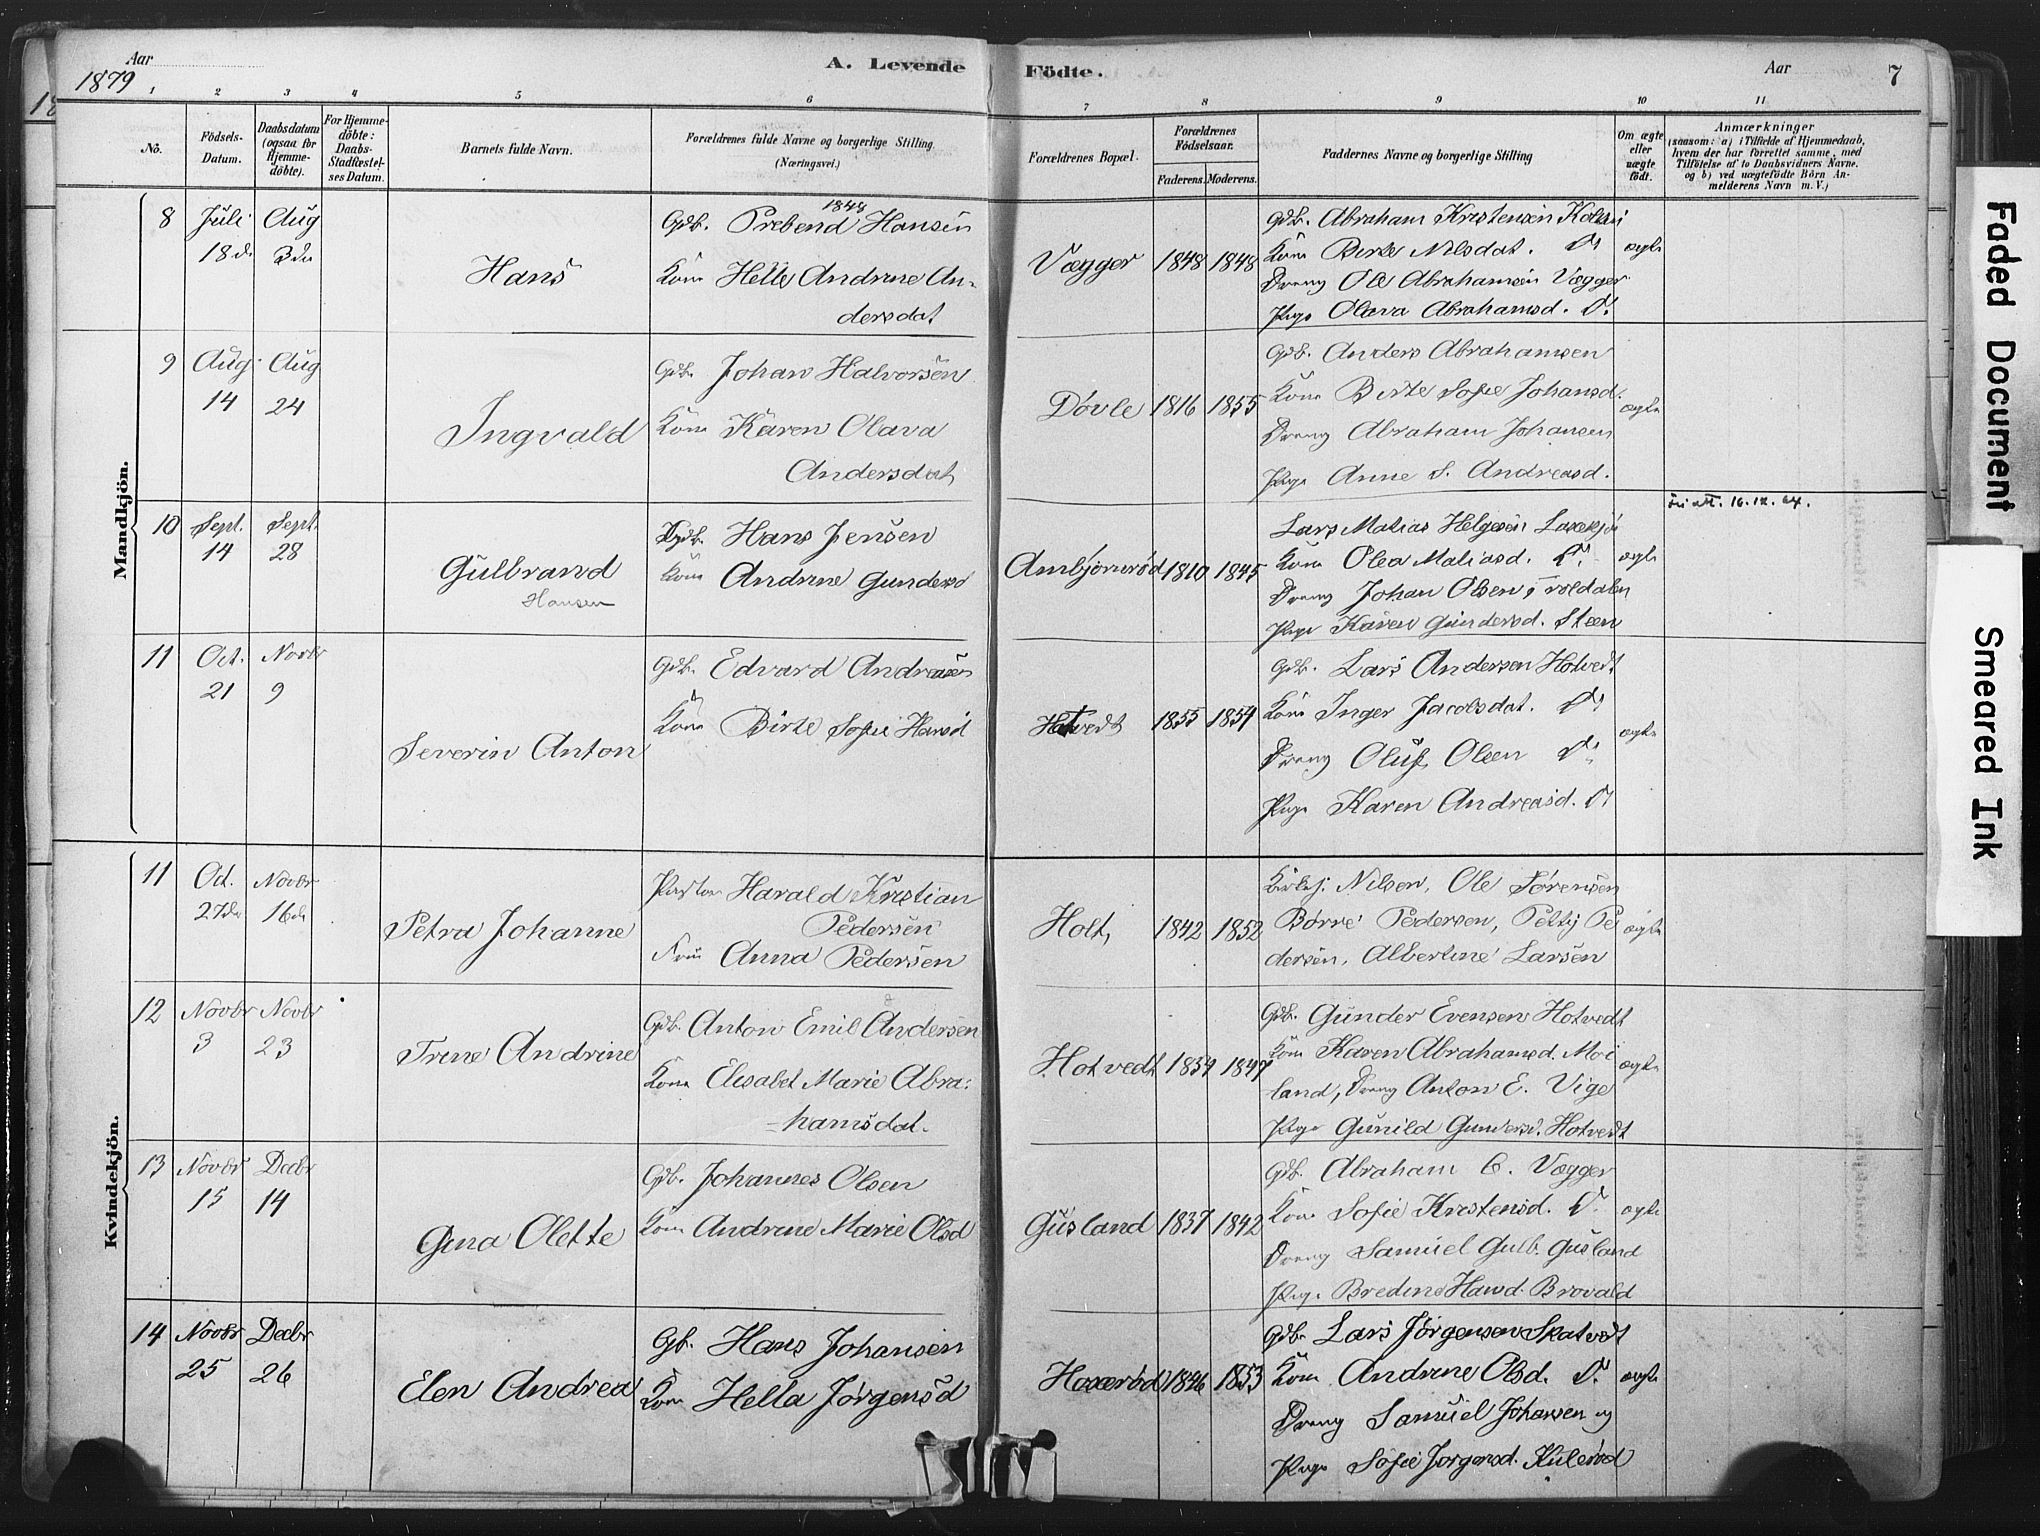 Aar 1879
A. Levende Födte.
Aar 7
1 2 3 4 5 6 7 8 9 10 11
No.
Födsels-Datum.
Daabsdatum (ogsaa for Hjemmedöbte).
For Hjemmedöbte: Daabs-Stadfæstelses Datum.
Barnets fulde Navn.
Forældrenes fulde Navne og borgerlige Stilling (Næringsvei.)
Forældrenes Bopæl.
Forældrenes Födselsaar.
Faderens. Moderens.
Faddernes Navne og borgerlige Stilling
Om ægte eller uægte födt.
Anmærkninger
(saasom: a) i Tilfælde af Hjemmedaab, hvem der har forrettet samme, med Tilföielse af to Daabsvidners Navne, og b) ved uægtefödte Börn Anmelderens Navn m. V.)
Mandkjön.
8 Juli 18de Aug 3die Hans
1848
Gdb. Prebend Hansen
Kone Helle Andrine An-
dersdat
Vægger 1848 1848
Gdb. Abraham Kristensen
Kone Birte Nilsdat. Do
Dreng Ole Abrahamsen Vægger
Pige Olava Abrahamsd. Do
ægte
9 Aug. 14 Aug 24 Ingvald
Gdb. Johan Halvorsen
Kone Karen Olava
Andersdat
Døvle 1816 1855
Gdb. Anders Abrahamsen
Kone Birte Sofie Johansd.
Dreng Abraham Johansen
Pige Anne S. Andreasd.
ægte
10 Sept. 14 Sept. 28 Gulbrand
Hansen
Gdb. Hans Jensen
Kone Andrine Gundersd
Ambjørnrød 1810 1845
Lars Matias Helgesen
Kone Olea Matiasd. Do
Dreng Johan Olsen, Troldalen
Pige Karen Gundersd. Steen
ægte
att. 16.12.64.
11 Oct. 21 Novbr 9 Severin Anton
Gdb. Edvard Andreasen
Kone Birte Sofie Hansd
Hotvedt 1855 1854
Gdb. Lars Andersen Hotvedt
Kone Inger Jacobsdat. Do
Dreng Oluf Olsen Do
Pige Karen Andreasd. Do
ægte
Kvindekjön.
11 Oct. 27de Novbr 16de Petra Johanne
Pastor Harald Kristian
Pedersen
Frue Anna Pedersen
Holt, 1842 1852
Kirkesj. Nilsen, Ole Sørensen
Børre Pedersen, Petty Pe
dersen, Albertine Larsen
ægte
12 Novbr 3 Novbr 23 Trine Andrine
Gdb. Anton Emil Andersen
Kone Elisabet Marie Abra-
hamsdat.
Hotvedt 1854 1847
Gdb. Gunder Evensen Hotvedt
Kone Karen Abrahamsd. Moi
land, Dreng Anton E. Vige
Pige Gunild Gundersd. Hotvedt
ægte
13 Novbr 15 Decbr 14 Gina Olette
Gdb. Johannes Olsen
Kone Andrine Marie Olsd
Gusland 1837 1842
Gdb. Abraham C. Vægger
Kone Sofie Kristensd. Do
Dreng Samuel Gulb. Gusland
Pige Bredine Hansd. Brovald
ægte
14 Novbr 25 Decbr 26 Elen Andrea
Gb. Hans Johansen
Kone Hella Jørgensd
Haxerød 1846 1853
Gdb. Lars Jørgensen Skatvedt
Kone Andrine Olsd. Do
Dreng Samuel Johansen og
Pige Sofie Jørgensd. Kulerød
ægte
Faded Document
Smeared Ink